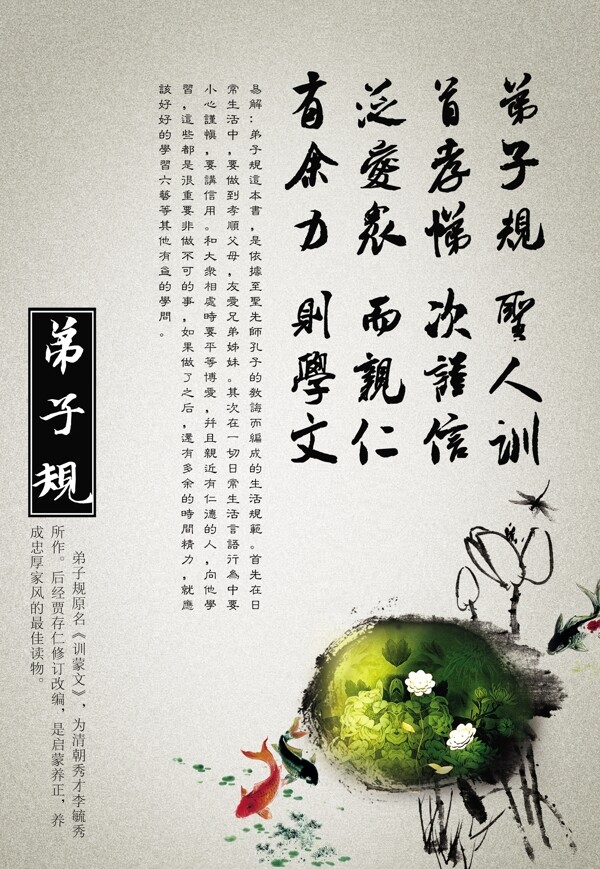 弟子規 聖人训
首孝悌 次謹信
泛愛衆 而親仁
有余力 則學文
易解：弟子規這本書，是依據至聖先師孔子的教誨而編成的生活規範。首先在日
常生活中，要做到孝順父母，友愛兄弟姊妹。其次在一切日常生活言語行為中要
小心謹慎，要講信用。和大衆相處時要平等博愛，并且親近有仁德的人，向他學
習，這些都是很重要非做不可的事，如果做了之后，還有多余的時間精力，就應
該好好的學習六藝等其他有益的學問。
弟子規
弟子规原名《训蒙文》，为清朝秀才李毓秀
所作。后经贾存仁修订改编，是启蒙养正，养
成忠厚家风的最佳读物。